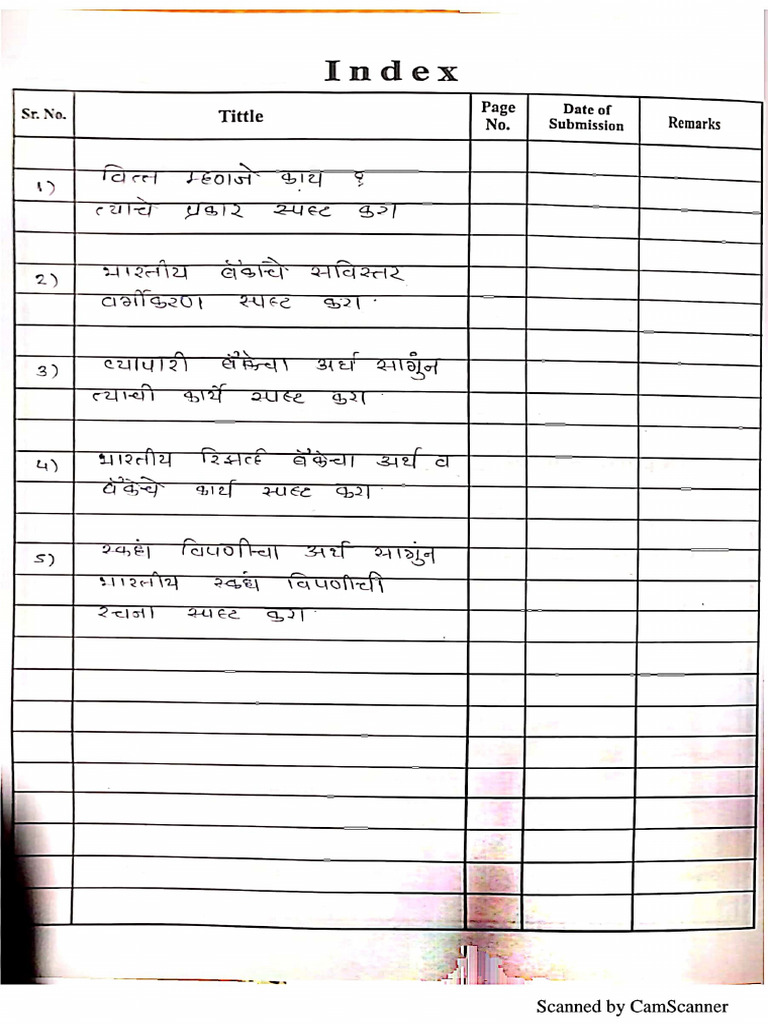 Index
Sr. No. Tittle Page No. Date of Submission Remarks
1) वित्त म्हणजे काय ?
त्याचे प्रकार स्पष्ट करा
2) भारतीय बँकांचे सविस्तर
वर्गीकरण स्पष्ट करा .
3) व्यापारी बँकेचा अर्थ सागुंन
त्याची कार्ये स्पष्ट करा .
4) भारतीय रिझर्व्ह बँकेचा अर्थ व
बँकेचे कार्य स्पष्ट करा .
5) स्कधं विपणीचा अर्थ सागुंन
भारतीय स्कधं विपणीची
रचना स्पष्ट करा .
Scanned by CamScanner